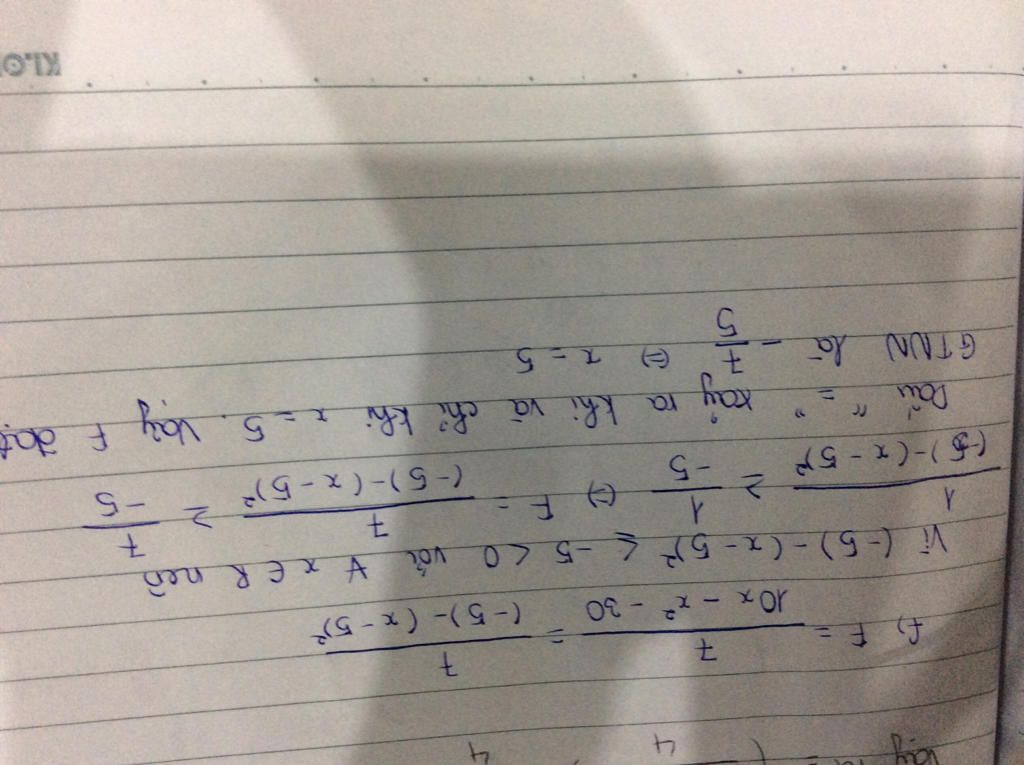 f) F = 7/(10x - x² - 30) = 7/((-5) - (x - 5)²)
Vì (-5) - (x - 5)² ≤ -5 < 0 với ∀ x ∈ R nên
1/((-5) - (x - 5)²) ≥ 1/-5 (=) F = 7/((-5) - (x - 5)²) ≥ 7/-5
Dấu " = " xảy ra khi và chỉ khi x = 5. Vậy F đạt
GTNN là - 7/5 (=) x = 5